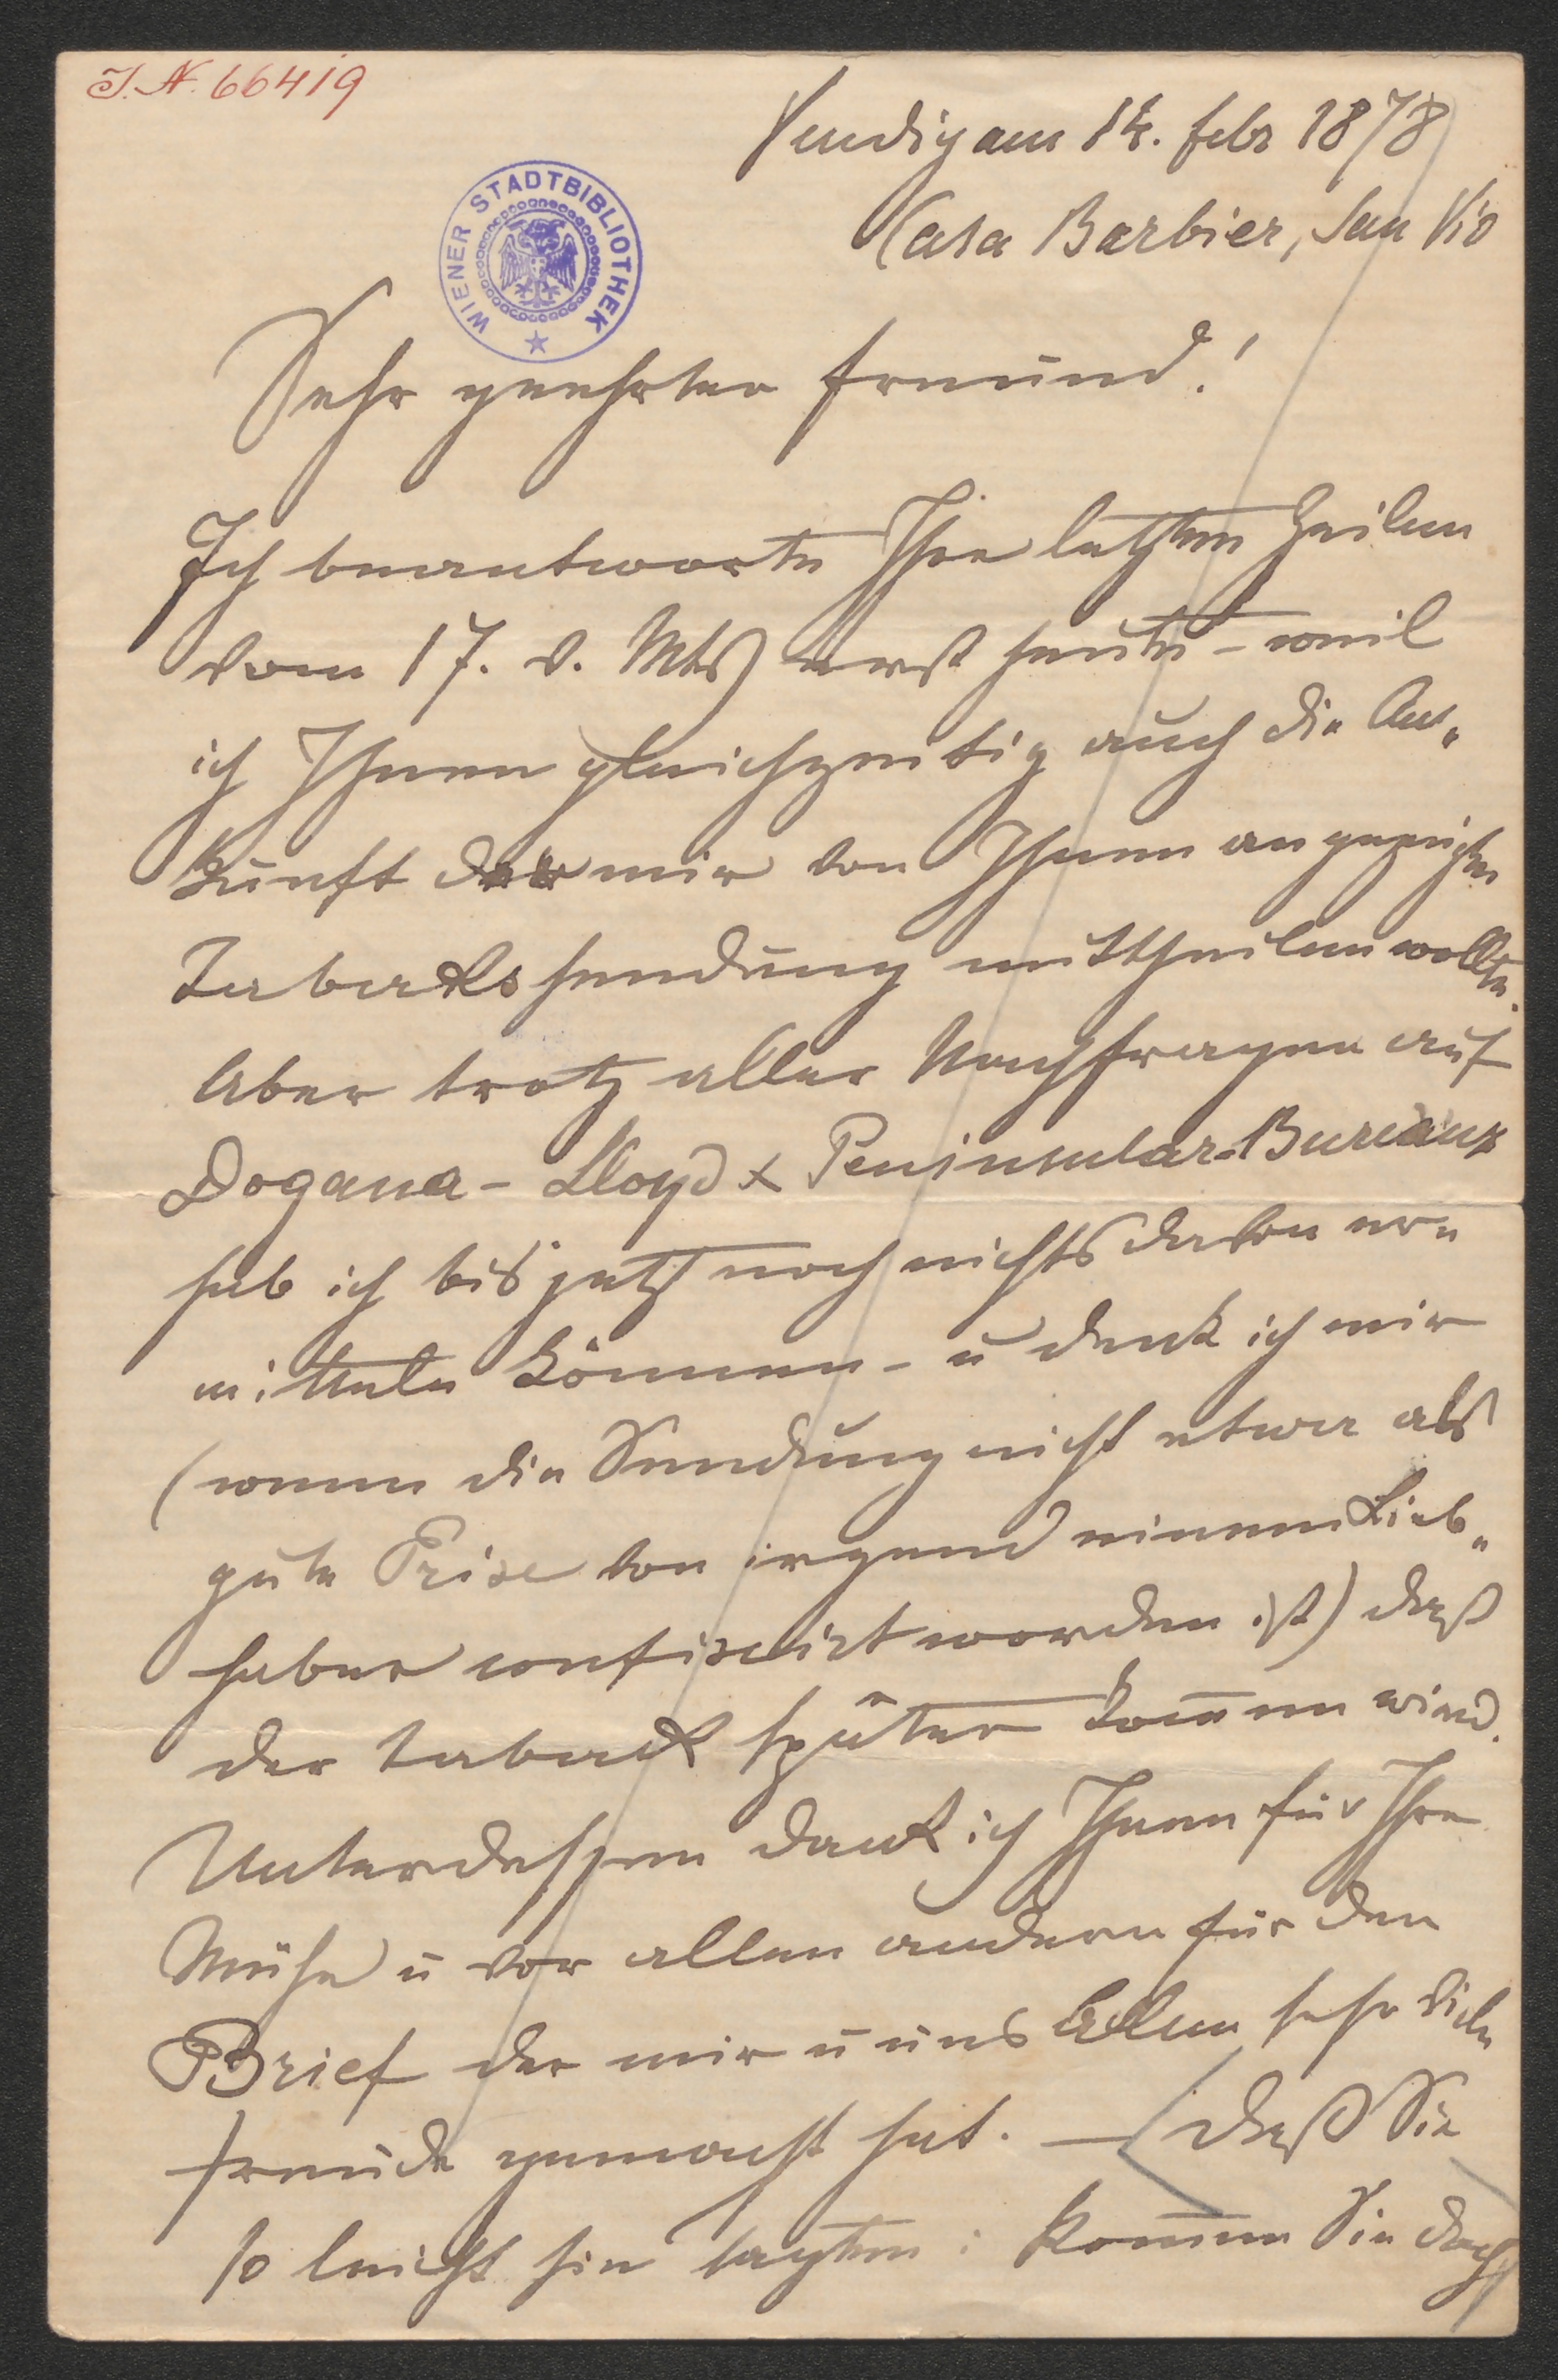 I. N. 66419
Venedig am 14. febr 1878
Casa Barbier, San Vio
WIENER STADTBIBLIOTHEK
Sehr geehrter Freund!
Ich beantworte Ihre letzten Zeilen
vom 17. v. Mts erst heute – weil
ich Ihnen gleichzeitig auch die An„
kunft der mir von Ihnen angezeigten
Tabakssendung mittheilen wollte.
Aber trotz aller Nachfragen auf
Dogana – Lloyd & Peninsular-Bureaux
hab ich bis jetzt noch nichts davon er„
mitteln können – u denk ich mir
(wenn die Sendung nicht etwa als
gute Prise von irgend einem Lieb„
haber confiscirt worden ist) daß
der Taback später kom̄en wird.
Unterdessen dank ich Ihnen für Ihre
Mühe u vor allen andern für den
Brief der mir u uns Allen sehr viele
Freude gemacht hat. – Daß Sie
so leicht hin sagten: Kom̄en Sie doch